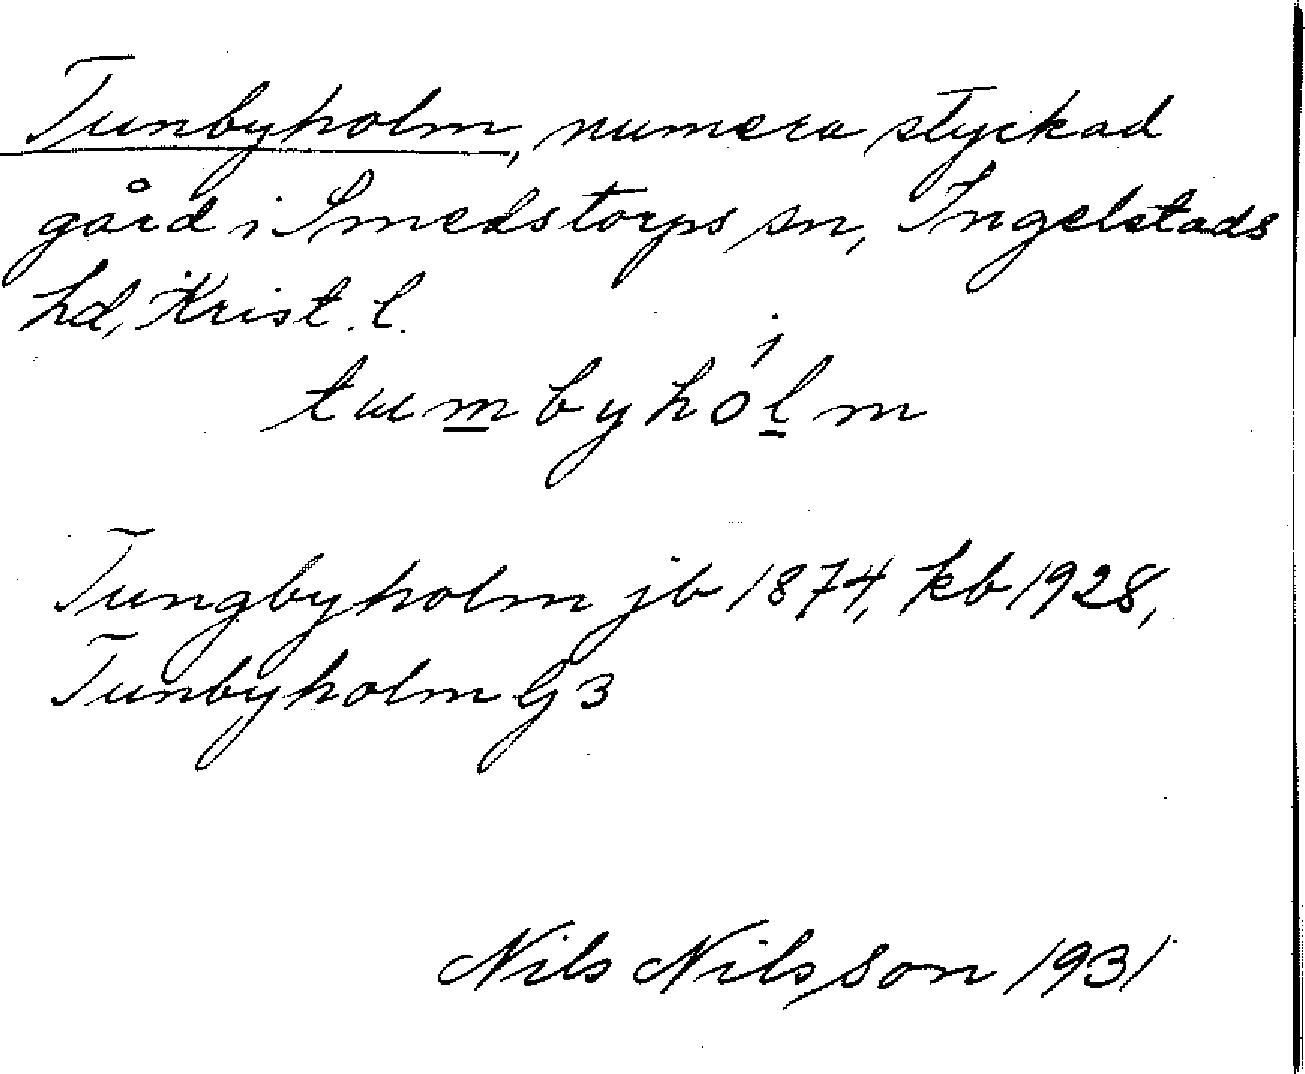 Tunbyholm, numera styckad
gård i Smedstorps sn, Ingelstads
hd, Krist. l.
tumbyhólm
Tungbyholm jb 1874, kb 1928,
Tunbyholm G 3
Nils Nilsson 1931